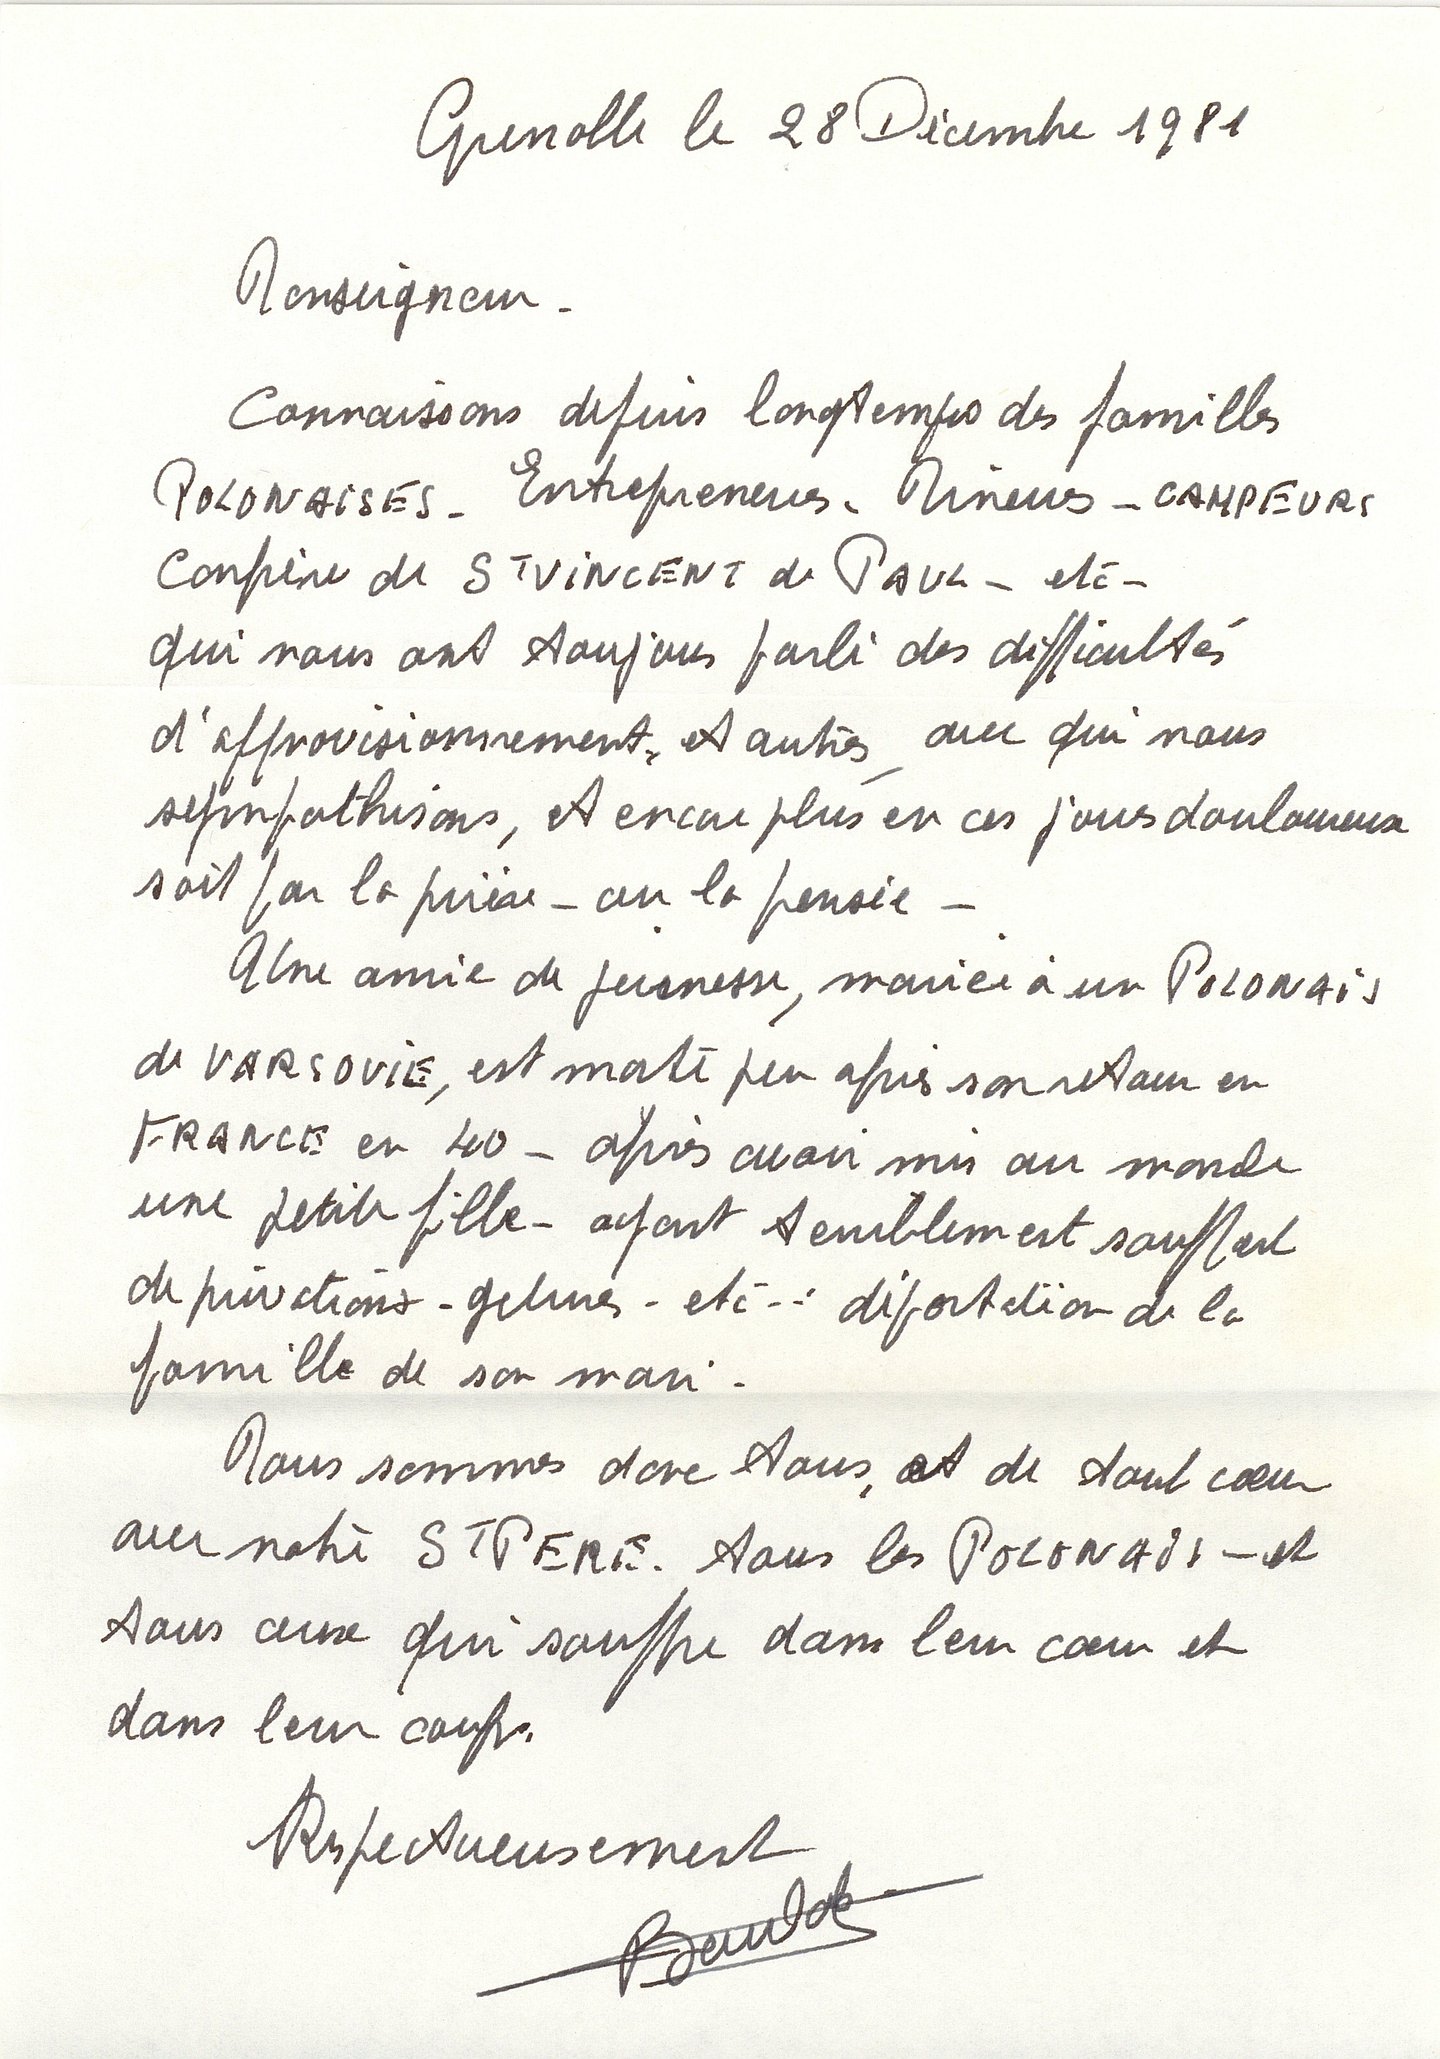 Grenoble le 28 Décembre 1981
Monseigneur -
Connaissons depuis longtemps des familles
POLONAISES - Entrepreneurs - Mineurs - CAMPEURS
Confrère de ST VINCENT de PAUL - etc -
qui nous ont toujours parlé des difficultés
d'approvisionnement, et autres, avec qui nous
sympathisons, et encore plus en ces jours douloureux
soit par la prière - ou la pensée -
Une amie de jeunesse, mariée à un POLONAIS
de VARSOVIE, est morte peu après son retour en
FRANCE en 40 - après avoir mis au monde
une petite fille - ayant terriblement souffert
de privations - gelures - etc - : déportation de la
famille de son mari -
Nous sommes donc tous, et de tout cœur
avec notre ST PERE. tous les POLONAIS - et
tous ceux qui souffre dans leur cœur et
dans leur corps.
Respectueusement